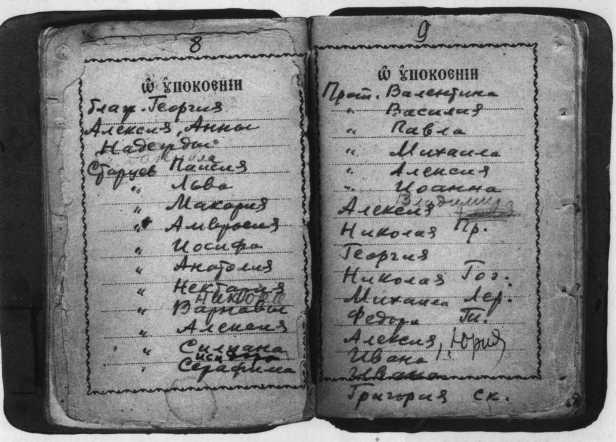 8
Ѡ ѸПОКОЕНІИ
Блаж. Георгия
Алексия, Анны
Надежды
Старцев Паисия
" Льва
" Макария
" Амвросия
" Иосифа
" Анатолия
" Нектария
" Варнавы
" Алексия
" Силуана
" Серафима
9
Ѡ ѸПОКОЕНІИ
Прот. Валентина
" Василия
" Павла
" Михаила
" Алексия
" Иоанна
Владимира
Алексия
Николая Пр.
Георгия
Николая Гог.
Михаила Лер.
Федора Т.
Алексия, Юрия
Ивана
Ивана
Григория Ск.